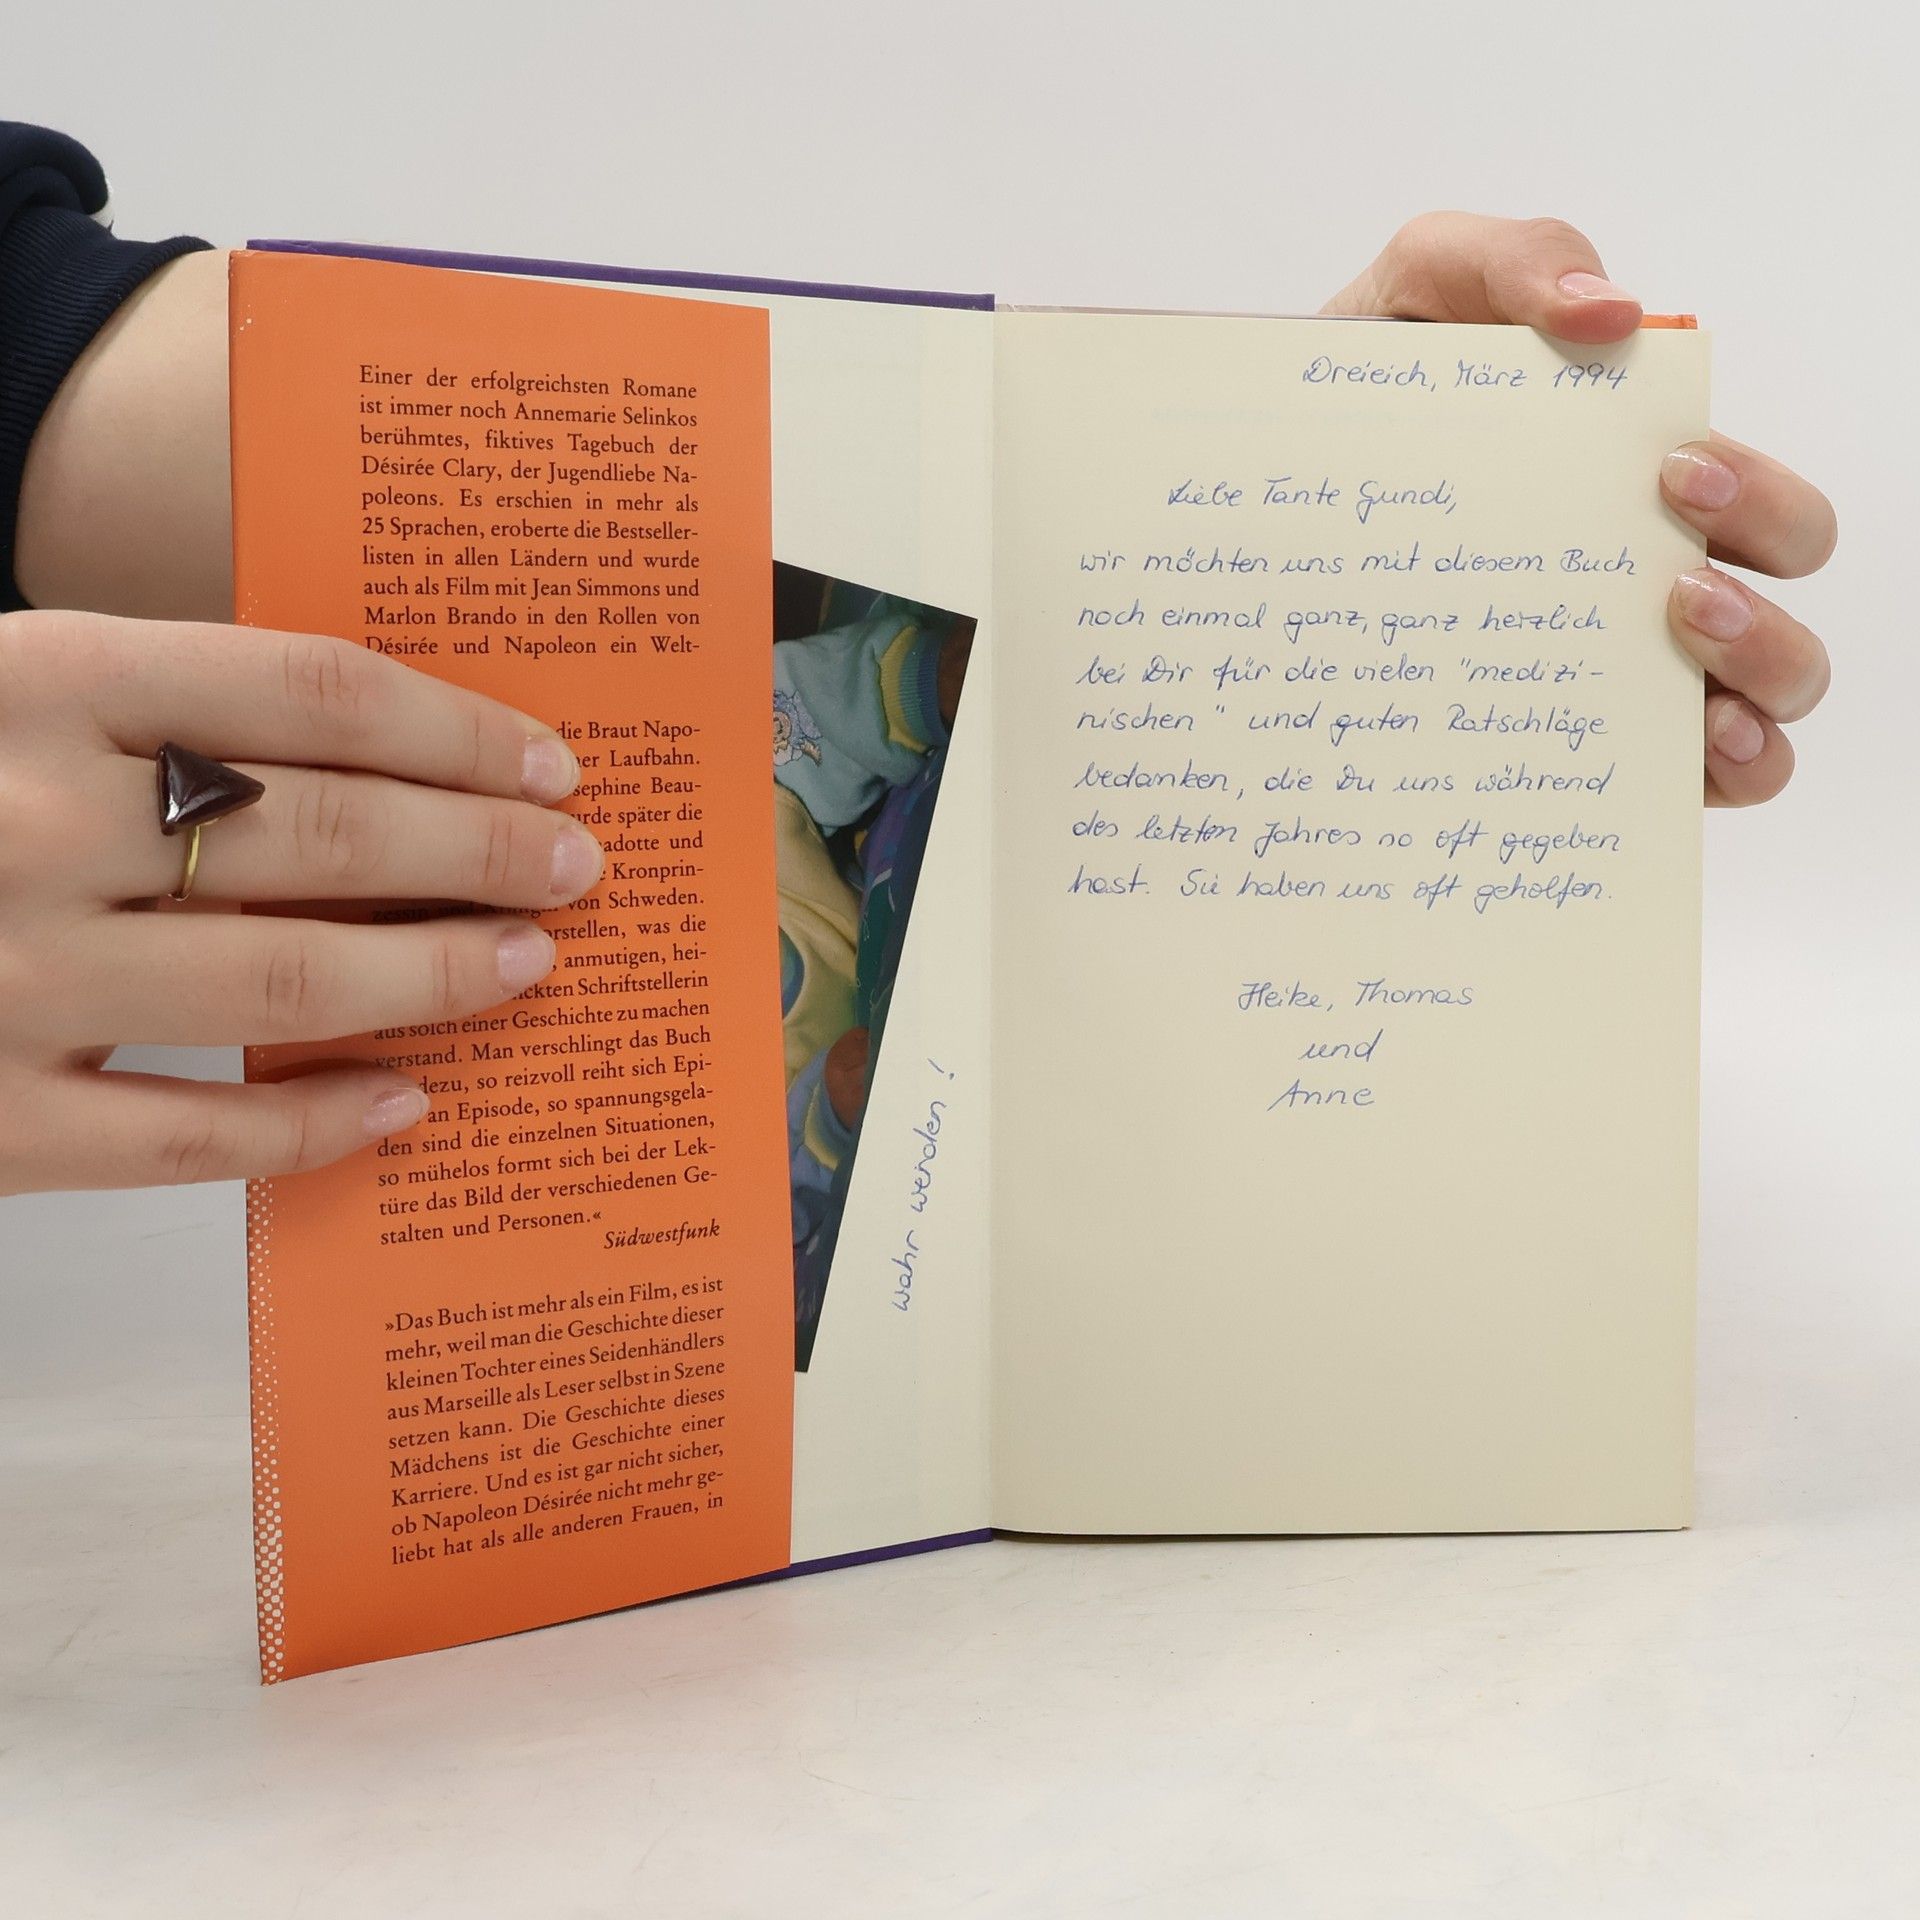 Einer der erfolgreichsten Romane
ist immer noch Annemarie Selinkos
berühmtes, fiktives Tagebuch der
Désirée Clary, der Jugendliebe Na-
poleons. Es erschien in mehr als
25 Sprachen, eroberte die Bestseller-
listen in allen Ländern und wurde
auch als Film mit Jean Simmons und
Marlon Brando in den Rollen von
Désirée und Napoleon ein Welt-
die Braut Napo-
Laufbahn.
Beau-
später die
und
Kronprin-
zessin und von Schweden.
was die
anmutigen, hei-
Schriftstellerin
aus solch einer Geschichte zu machen
verstand. Man verschlingt das Buch
so reizvoll reiht sich Epi-
an Episode, so spannungsgela-
den sind die einzelnen Situationen,
so mühelos formt sich bei der Lek-
türe das Bild der verschiedenen Ge-
stalten und Personen.«
Südwestfunk
»Das Buch ist mehr als ein Film, es ist
mehr, weil man die Geschichte dieser
kleinen Tochter eines Seidenhändlers
aus Marseille als Leser selbst in Szene
setzen kann. Die Geschichte dieses
Mädchens ist die Geschichte einer
Karriere. Und es ist gar nicht sicher,
ob Napoleon Désirée nicht mehr ge-
liebt hat als alle anderen Frauen, in
wahr werden!
Dreieich, März 1994
Liebe Tante Gundi,
wir möchten uns mit diesem Buch
noch einmal ganz, ganz herzlich
bei Dir für die vielen "medizi-
nischen" und guten Ratschläge
bedanken, die Du uns während
des letzten Jahres so oft gegeben
hast. Sie haben uns oft geholfen.
Heike, Thomas
und
Anne